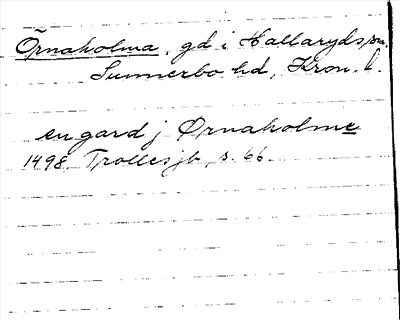 Örnaholma, gd i Hallaryds sn.
Sunnerbo hd, Kron. l.
en gard j Ørnaholme
1498. Trollesjb, s. 66.